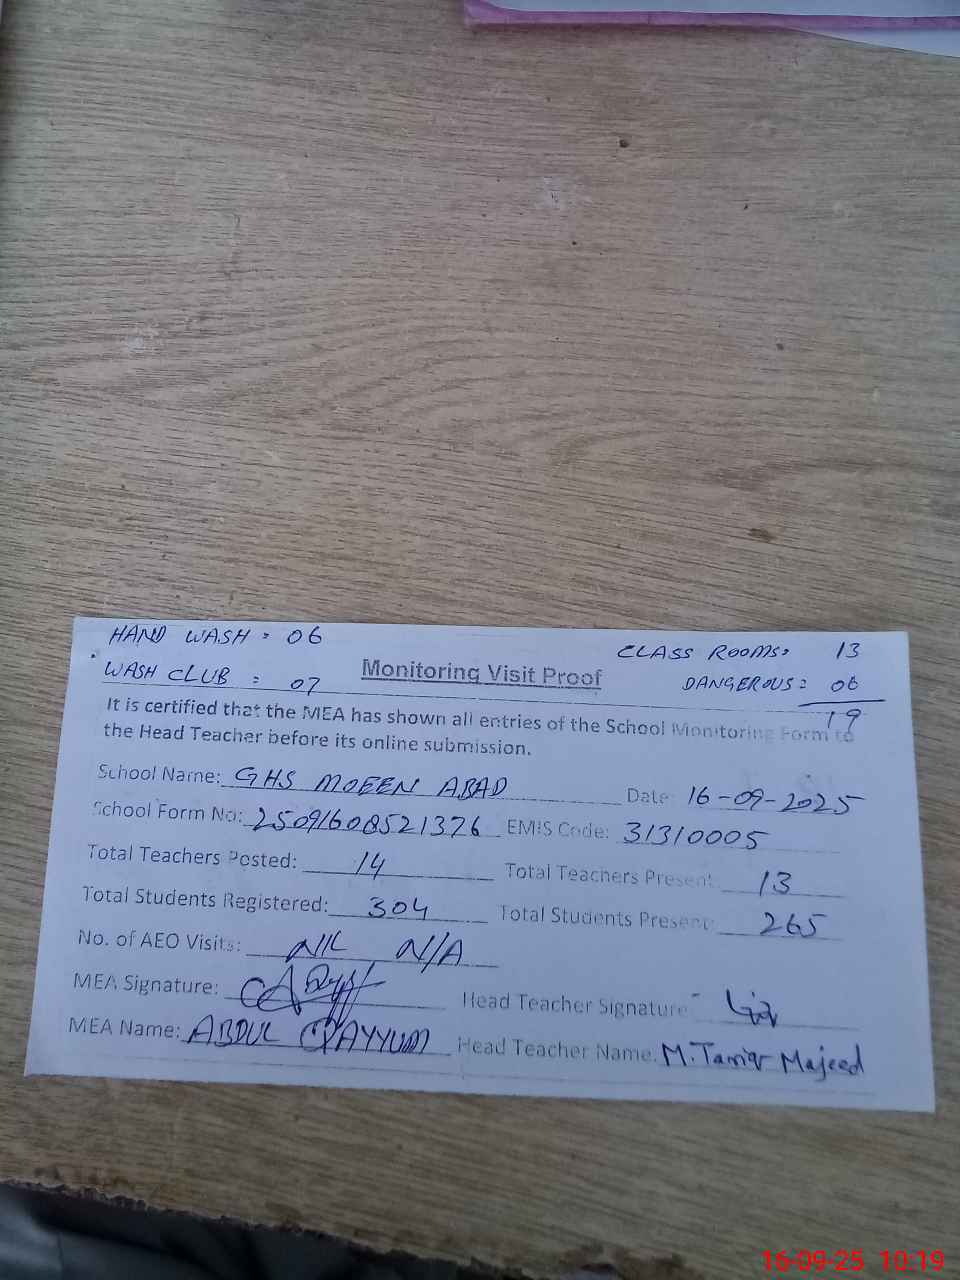 HAND WASH : 06
CLASS ROOMS: 13
WASH CLUB : 07
Monitoring Visit Proof
DANGEROUS: 06
19
It is certified that the MEA has shown all entries of the School Monitoring Form to
the Head Teacher before its online submission.
School Name: GHS MOEEN ABAD Date: 16-09-2025
School Form No: 25091608521376 EMIS Code: 31310005
Total Teachers Posted: 14 Total Teachers Present: 13
Total Students Registered: 304 Total Students Present: 265
No. of AEO Visits: NIL N/A
MEA Signature: Head Teacher Signature
MEA Name: ABDUL QAYYUM Head Teacher Name: M. Tariq Majeed
16-09-25 10:19